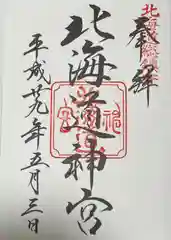 北海道総鎮守
奉拝
北海道神宮
平成廿九年五月三日